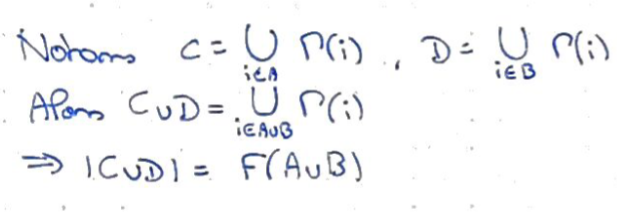 Notons C = ⋃_{i∈A} Γ(i), D = ⋃_{i∈B} Γ(i)
Alors C∪D = ⋃_{i∈A∪B} Γ(i)
⇒ |C∪D| = F(A∪B)